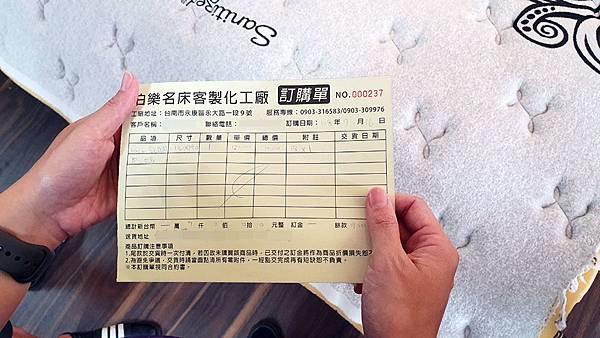 Sanitized
伯樂名床客製化工廠 訂購單 NO.000237
工廠地址：台南市永康區永大路一段9號 服務專線：0903-316583/0903-309976
客戶名稱： 聯絡電話： 訂購日期： 年 月 日
品項 尺寸 數量 單價 總價 附註 交貨日期
總計新台幣 萬 仟 佰 拾 元整 訂金 餘款
送貨地址
商品訂購注意事項
1.尾款於交貨時一次付清，若因故未購買該商品時，已交付之訂金將作為商品折價損失恕不
2.為避免爭議，交貨時請當面點清所有電附件，一經點交完成再有短缺恕不負責。
※本訂購單視同合約書。